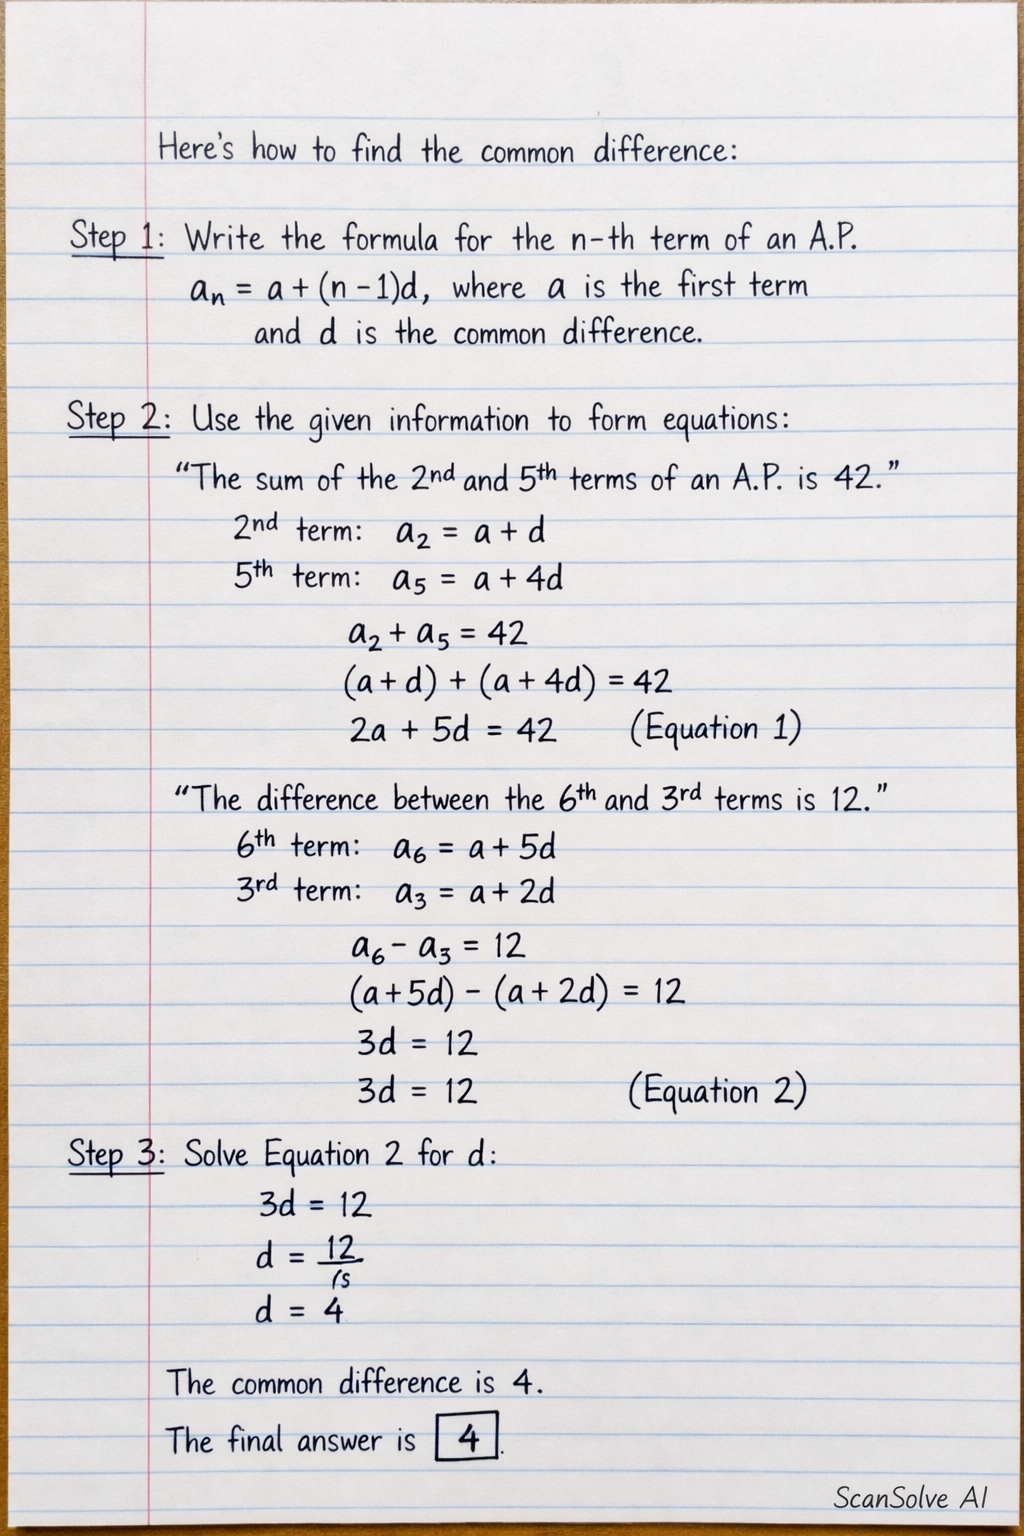 Here's how to find the common difference:
Step 1: Write the formula for the n-th term of an A.P.
aₙ = a + (n - 1)d, where a is the first term
and d is the common difference.
Step 2: Use the given information to form equations:
“The sum of the 2nd and 5th terms of an A.P. is 42.”
2nd term: a₂ = a + d
5th term: a₅ = a + 4d
a₂ + a₅ = 42
(a + d) + (a + 4d) = 42
2a + 5d = 42 (Equation 1)
“The difference between the 6th and 3rd terms is 12.”
6th term: a₆ = a + 5d
3rd term: a₃ = a + 2d
a₆ - a₃ = 12
(a + 5d) - (a + 2d) = 12
3d = 12
3d = 12 (Equation 2)
Step 3: Solve Equation 2 for d:
3d = 12
d = 12/
d = 4
The common difference is 4.
The final answer is 4.
ScanSolve AI